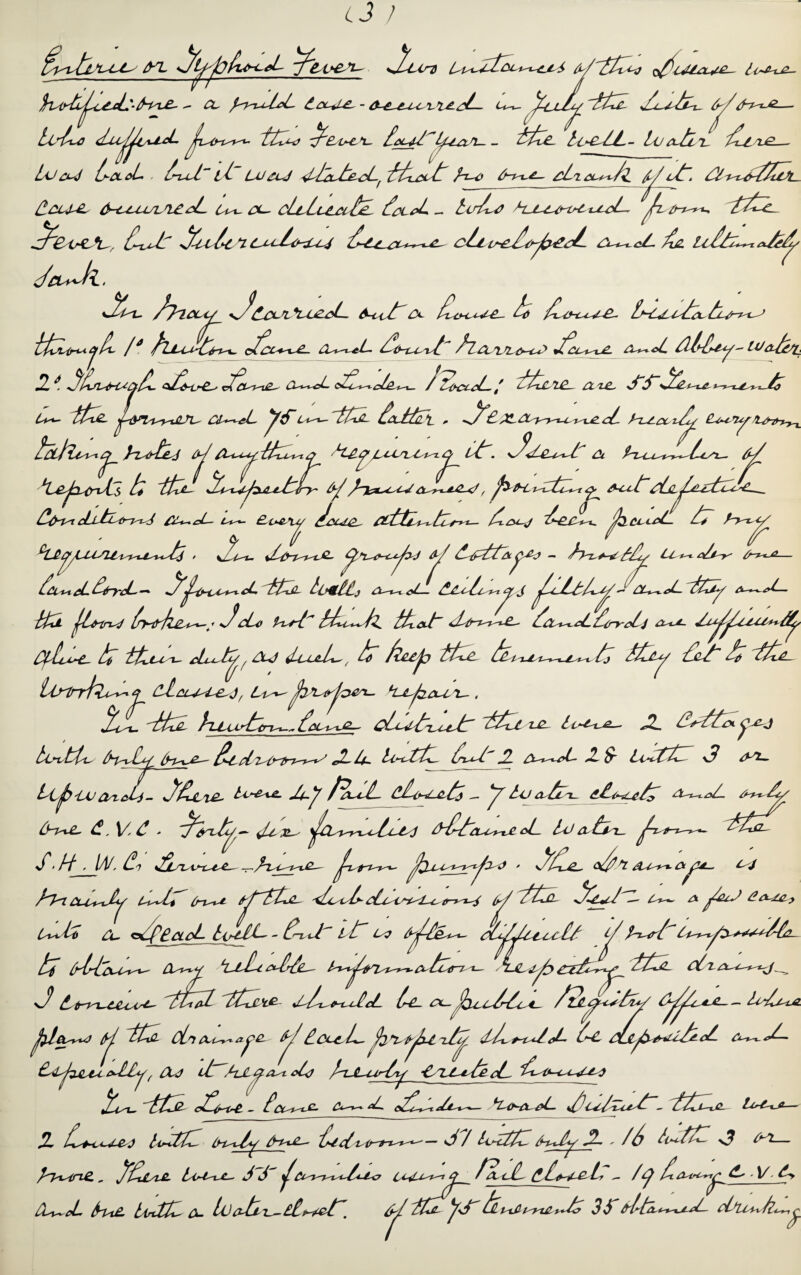 (3)
Enteric or Typhoid Fever. Two instances of this Disease were
notified:- One - a mild case - occurred in July the sister of one
who suffered from this Fever last year - the well-water here
was bad. but it was stated, that no one drank of it. Another
Case occurred in a delicate lad - who recovered from the
Fever, but Tuberculosis became developed and he ultimately
sank.
In May I carried out a house to house visitation
through 1º Newton Lane and Court Harrow Lane and Abbey-water,
2º. Through Love Lane and Linden Road; there are 55 Tenements
in the former and 75 in the latter. I examined nearly every room
taking notes of anything requiring it. I sent a number of
reports to the Inspector of nuisances, pointing out defective
Conditions and in every case attention has been paid to my
requirements. In some groups of Cottages - mostly under one
landlord - I found the walls and Ceilings filthy - and they and
the floors broken; I do not think that some landlords are sufficiently
alive to their duty, as such, to keep the tenements they let to the
Working Classes, in proper repair.
In the Newton-Lane district there were 2 Cottages
with only one Bedroom 24 with but 2 and 28 with 3 or
upwards - There were 47 Pail Closets - 7 water closets and only
One E. V. C. Forty-six families obtained water from the
S. H. W. Co Service - Nine from pumps. The Drainage is
mainly into one of the sub divisions of the Test - in a few cases
into a Dead well - but it is often difficult if not impossible
to obtain any reliable information respecting the drains.
I conceive that there should be a public Registry Office - where
plans of the drainage of each property should be deposited and
especially, as it regards newly erected houses
In the Love-Lane and Linden road District - there were
2 houses with only one bedroom - 57 with only 2 - 16 with 3 or
more. There were 55 families using Pail Closets - 19 having E. V. C,
and one with a Water-Closet. Of the 75 tenements 35 obtained drinking